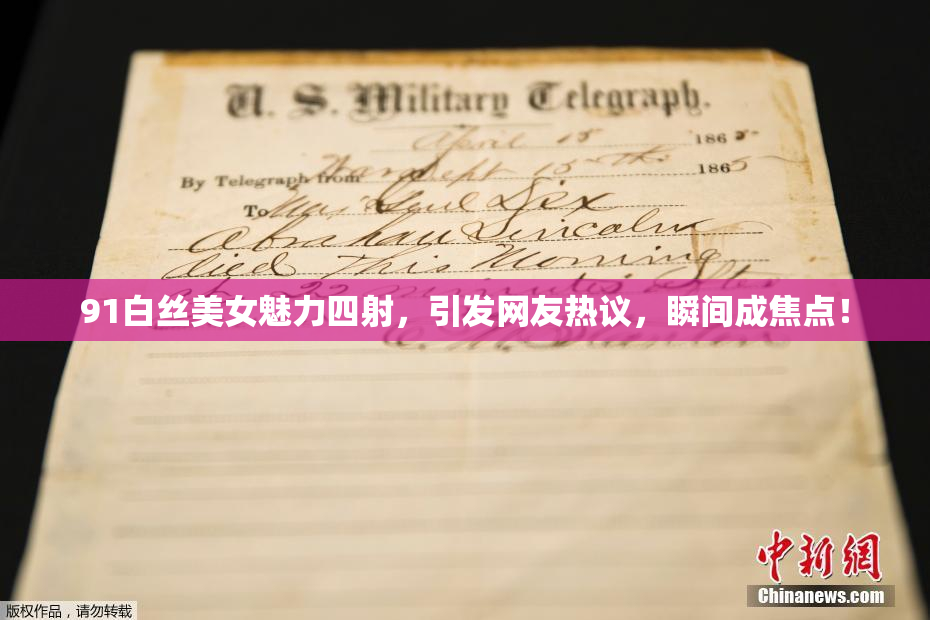 U. S. Military Telegraph.
April 15 1865
By Telegraph from War Dept 15th 1865
To Maj Genl Dix
Abraham Lincoln
died This Morning
at 22 minutes after
91白丝美女魅力四射，引发网友热议，瞬间成焦点！
E. M. Stanton
中新网
Chinanews.com
版权作品，请勿转载